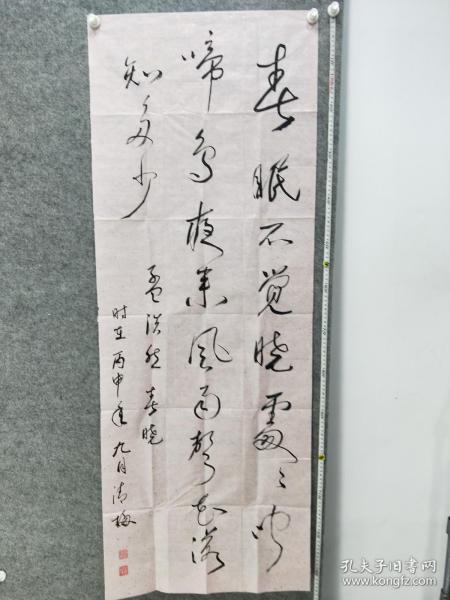 春眠不觉晓处々闻
啼鸟夜来风雨声花落
知多少
孟浩然春晓
时在丙申年九月清梅
孔夫子旧书网
www.kongfz.com